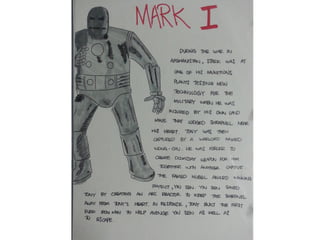 MARK I
DURING THE WAR IN
AFGHANISTAN, STARK WAS AT
ONE OF HIS MUNITIONS
PLANTS TESTING NEW
TECHNOLOGY FOR THE
MILITARY WHEN HE WAS
INJURED BY HIS OWN LAND
MINE THAT LODGED SHRAPNELL NEAR
HIS HEART. TONY WAS THEN
CAPTURED BY A WARLORD NAMED
WONG-CHU. HE WAS FORCED TO
CREATE DOOMSDAY WEAPON FOR HIM
TOGETHER WITH ANOTHER CAPTIVE
THE FAMED NOBEL AWARD WINNING
PHYSICIST, YIN SEN. YIN SEN SAVED
TONY BY CREATING AN ARC REACTOR TO KEEP THE SHRAPNEL
AWAY FROM TONY'S HEART. IN RESPONSE, TONY BUILT THE FIRST
EVER IRON MAN TO HELP AVENGE YIN SEN AS WELL AS
TO ESCAPE.